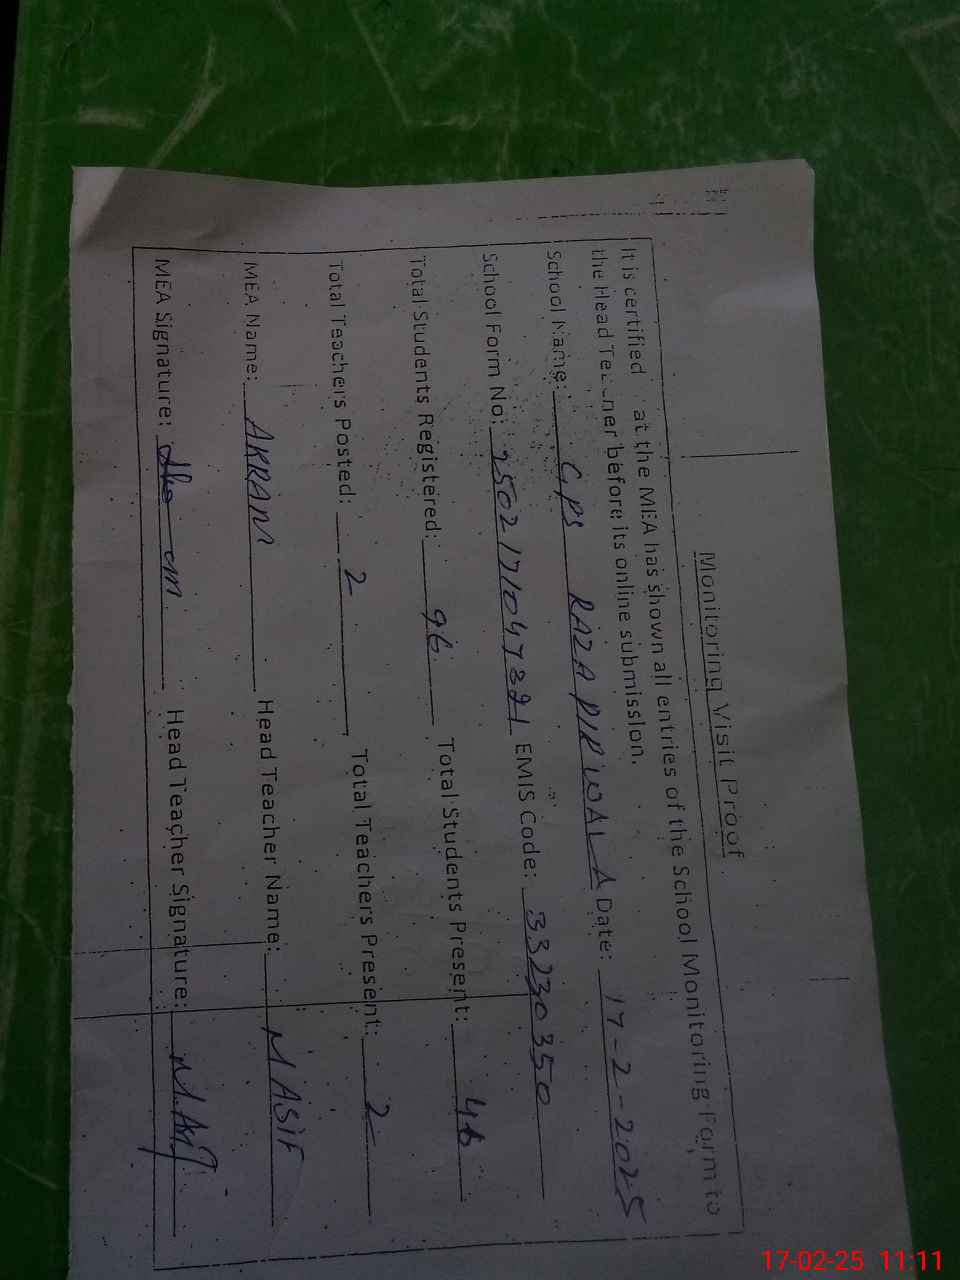 Monitoring Visit Proof
It is certified at the MEA has shown all entries of the School Monitoring Form to
the Head Teacher before its online submission.
School Name: GPS RAZA PIRWALA Date: 17-2-2025
School Form No: EMIS Code: 33230350
Total Students Registered: 96 Total Students Present: 46
Total Teachers Posted: 2 Total Teachers Present: 2
MEA Name: AKRAM Head Teacher Name: M ASIF
MEA Signature: Head Teacher Signature:
17-02-25 11:11